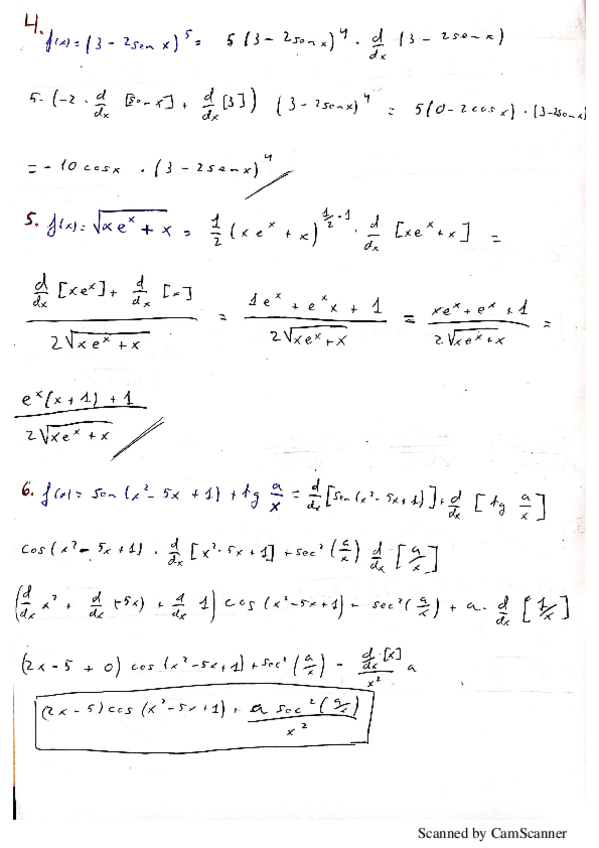 4. f(x) = (3 - 2sen x)^5 = 5(3 - 2sen x)^4 · d/dx (3 - 2sen x)
5·(-2 · d/dx [sen x] + d/dx [3]) (3 - 2sen x)^4 = 5(0 - 2cos x) · (3 - 2sen x)
= -10 cos x · (3 - 2sen x)^4
5. f(x) = √(xe^x + x) = 1/2 (xe^x + x)^(1/2 - 1) · d/dx [xe^x + x] =
(d/dx [xe^x] + d/dx [x]) / (2√(xe^x + x)) = (1e^x + e^x x + 1) / (2√(xe^x + x)) = (xe^x + e^x + 1) / (2√(xe^x + x)) =
(e^x(x + 1) + 1) / (2√(xe^x + x))
6. f(x) = sen(x² - 5x + 1) + tg a/x = d/dx [sen(x² - 5x + 1)] + d/dx [tg a/x]
cos(x² - 5x + 1) · d/dx [x² - 5x + 1] + sec²(a/x) d/dx [a/x]
(d/dx x² + d/dx (-5x) + d/dx 1) cos(x² - 5x + 1) + sec²(a/x) + a · d/dx [1/x]
(2x - 5 + 0) cos(x² - 5x + 1) + sec²(a/x) - (d/dx [x])/x² a
(2x - 5) cos(x² - 5x + 1) + (a sec²(a/x))/x²
Scanned by CamScanner